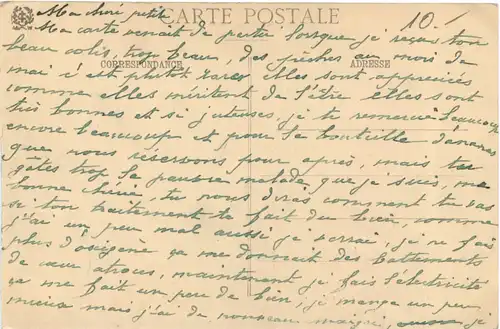 CARTE POSTALE
CORRESPONDANCE
ADRESSE
10.
Ma chère petite,
Ma carte venait de partir lorsque je reçus ton
beau colis, trop beau, des pêches au mois de
mai c'est plutôt rares elles sont appréciées
comme elles méritent de l'être elles sont
très bonnes et si juteuses, je te remercie beaucoup
encore beaucoup et pour la bouteille d'ananas
que nous réservons pour après, mais tu
gâtes trop la pauvre malade que je suis, ma
bonne chérie, tu nous diras comment tu vas
si ton traitement te fait du bien, comme
j'ai un peu mal aussi je verrai, je ne fais
plus d'oxigène ça me donnait des battements
de cœur atroces, maintenant je fais l'électricité
ça me fait un peu de bien, je mange un peu
mieux mais j'ai de nouveau maigri, je